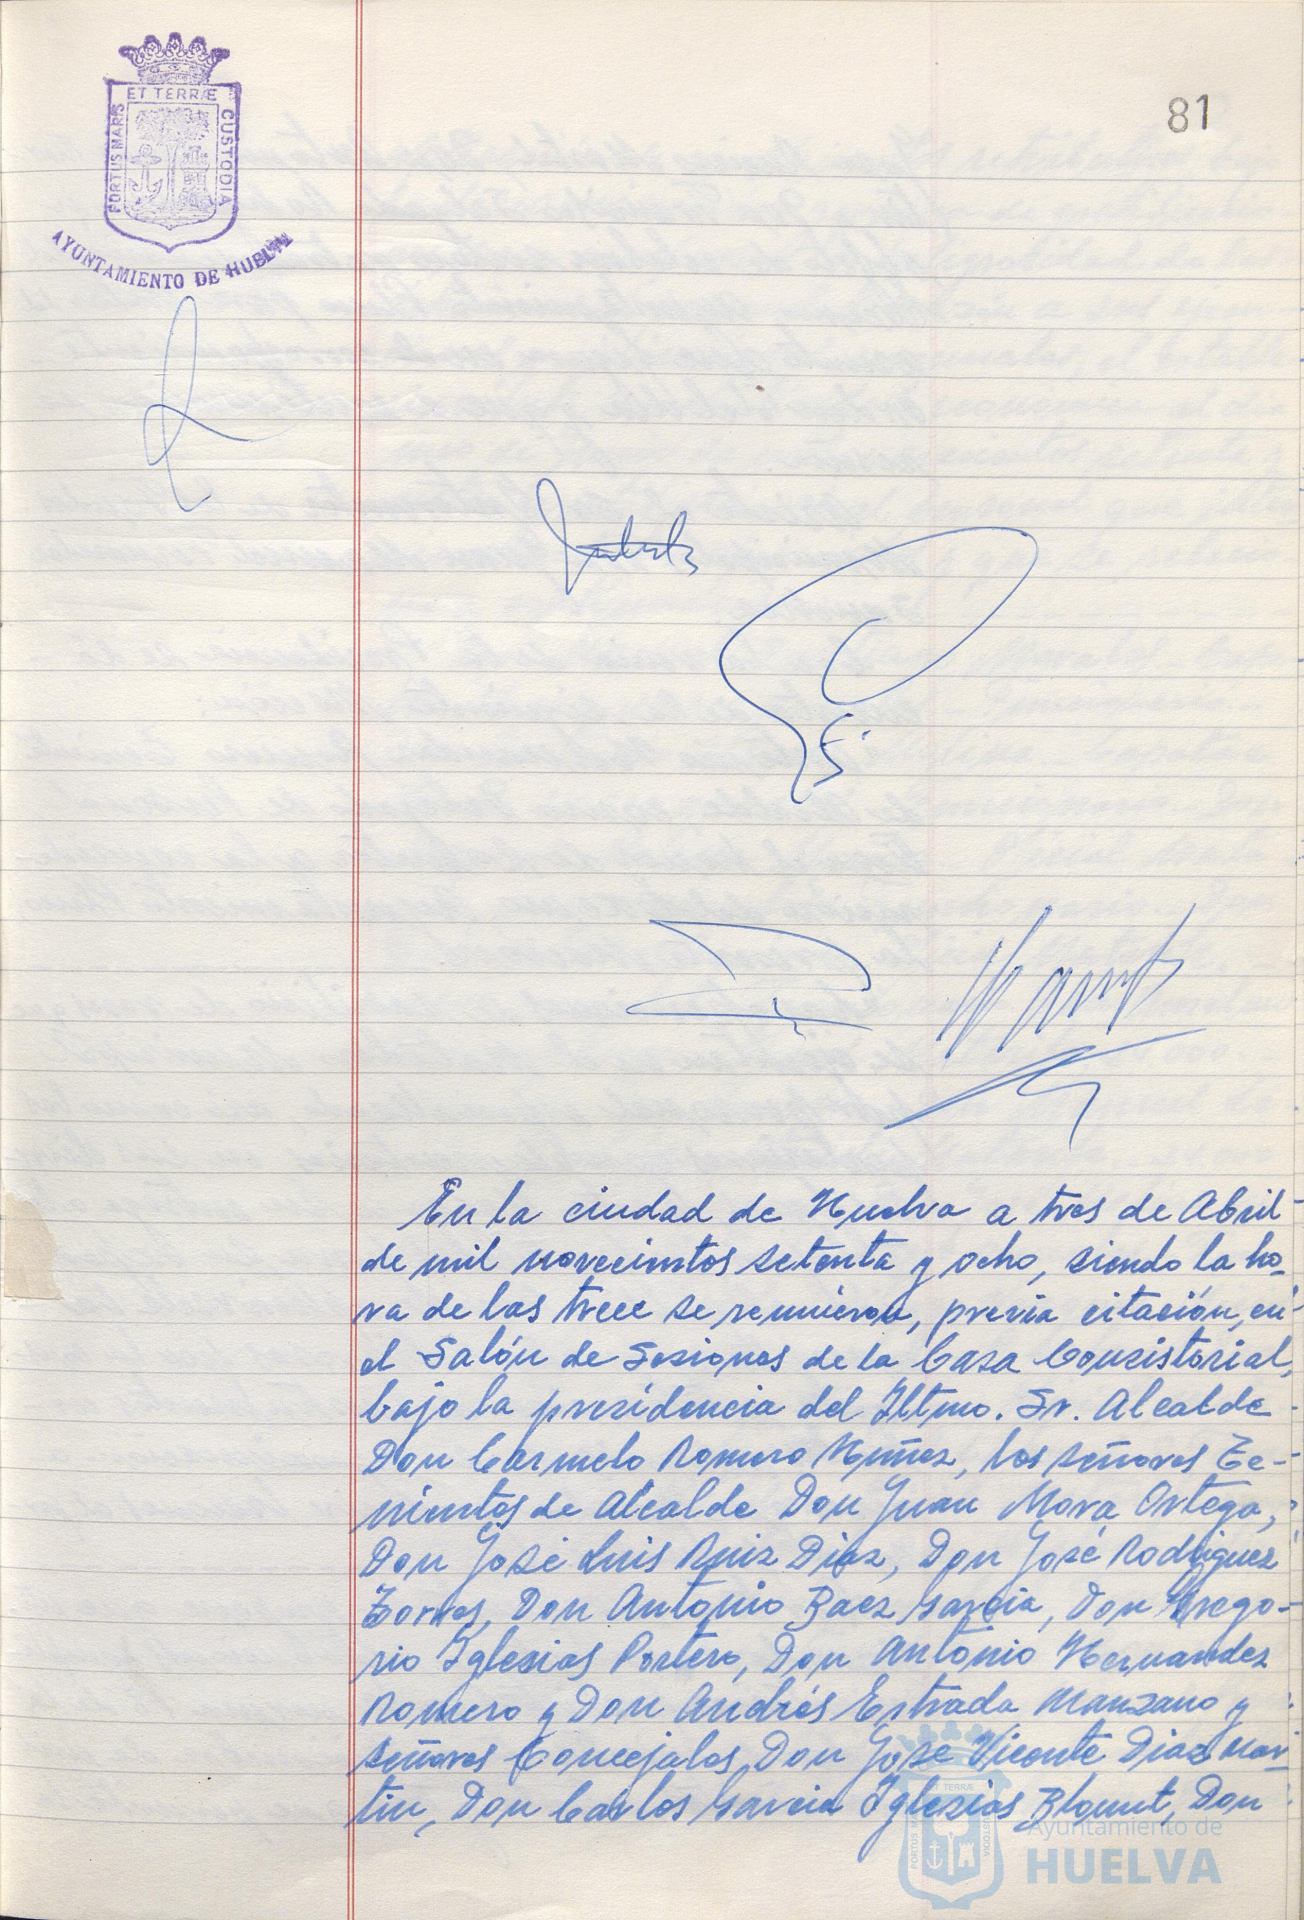 81
PORTUS MARIS ET TERRÆ CUSTODIA
AYUNTAMIENTO DE HUELVA
En la ciudad de Huelva a tres de Abril
de mil novecientos setenta y ocho, siendo la ho-
ra de las trece se reunieron, previa citación, en
el Salón de Sesiones de la Casa Consistorial,
bajo la presidencia del Iltmo. Sr. Alcalde
Don Carmelo Romero Núñez, los señores Te-
nientes de Alcalde Don Juan Mora Ortega,
Don José Luis Ruiz Díaz, Don José Rodríguez
Torres, Don Antonio Baez García, Don Grego-
rio Iglesias Portero, Don Antonio Hernandez
Romero y Don Andrés Estrada Manzano y
señores Concejales Don José Vicente Diaz Mar-
tin, Don Carlos Garcia Iglesias Blount, Don
Ayuntamiento de
HUELVA